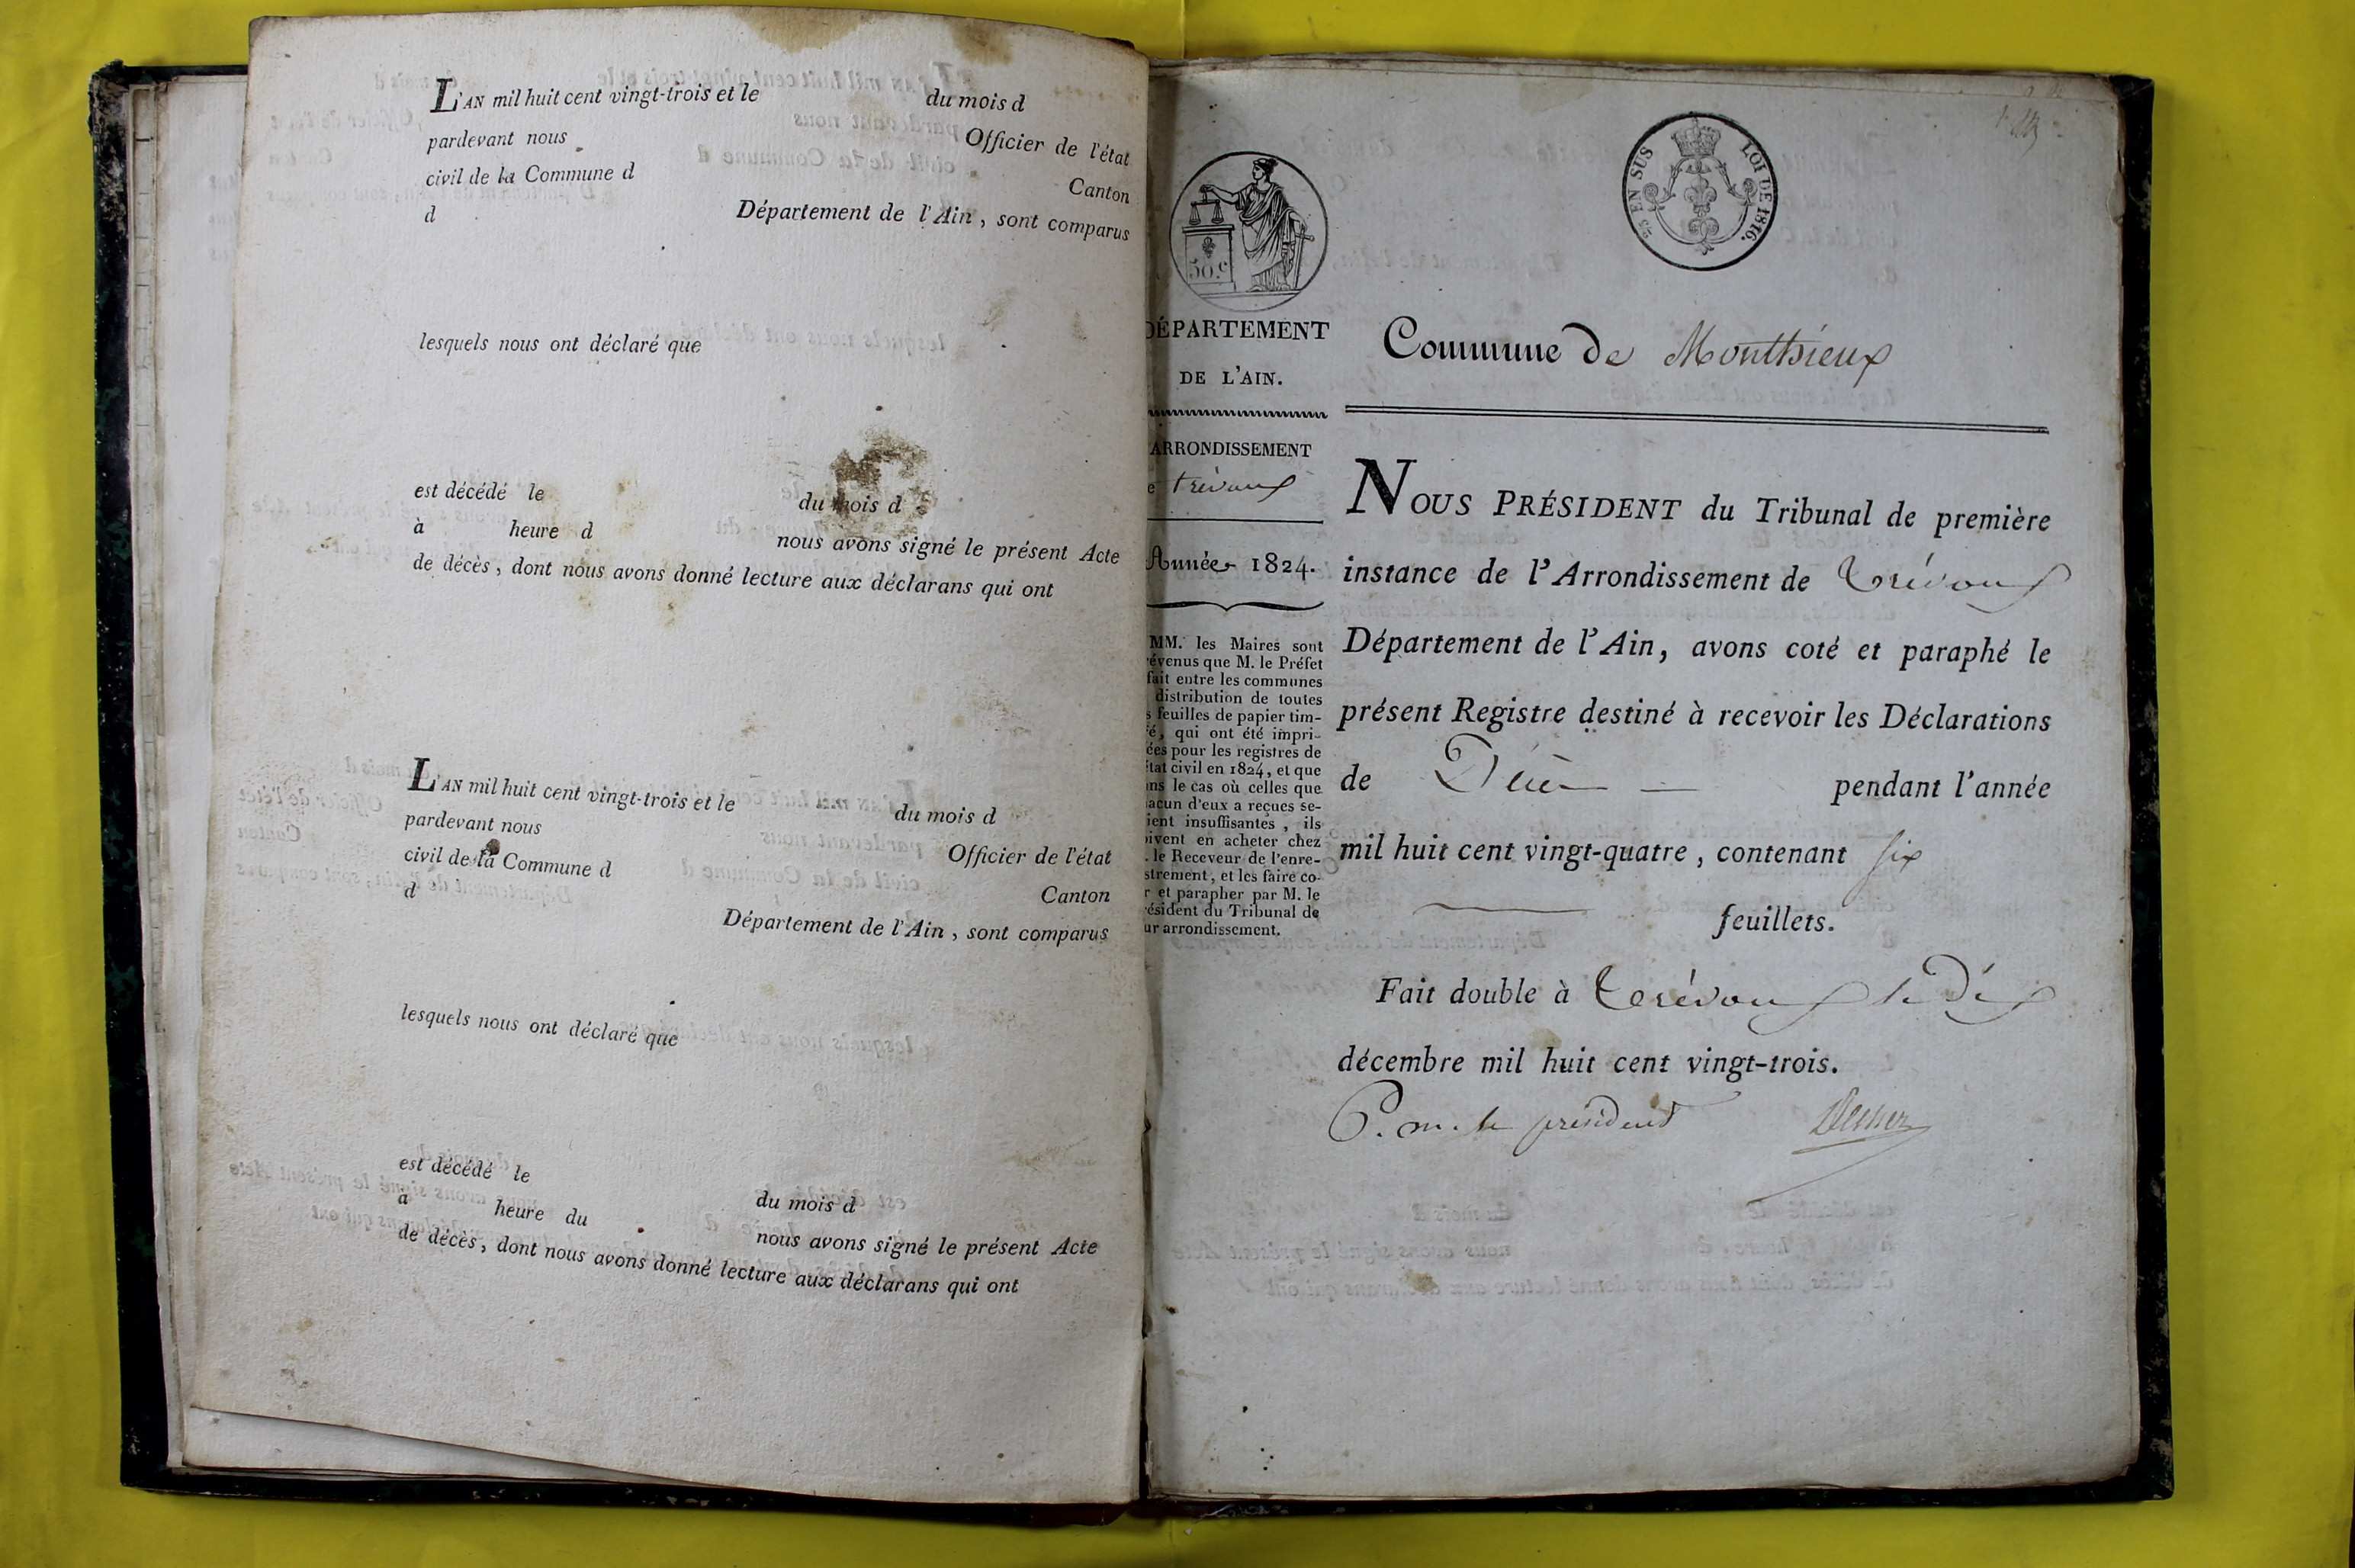 L'AN mil huit cent vingt-trois et le du mois d
pardevant nous Officier de l'état
civil de la Commune d Canton
d Département de l'Ain, sont comparus
lesquels nous ont déclaré que
est décédé le du mois d
à heure d nous avons signé le présent Acte
de décès, dont nous avons donné lecture aux déclarans qui ont
L'AN mil huit cent vingt-trois et le du mois d
pardevant nous Officier de l'état
civil de la Commune d Canton
d Département de l'Ain, sont comparus
lesquels nous ont déclaré que
est décédé le du mois d
à heure du nous avons signé le présent Acte
de décès, dont nous avons donné lecture aux déclarans qui ont
50.c
EN SUS LOI DE 1816.
DÉPARTEMENT
DE L'AIN.
ARRONDISSEMENT
e trévoux
Année 1824.
MM. les Maires sont
évenus que M. le Préfet
fait entre les communes
distribution de toutes
s feuilles de papier tim-
é, qui ont été impri-
ées pour les registres de
état civil en 1824, et que
ns le cas où celles que
acun d'eux a reçues se-
ient insuffisantes, ils
oivent en acheter chez
. le Receveur de l'enre-
strement, et les faire co-
r et parapher par M. le
résident du Tribunal de
ur arrondissement.
Commune de Monthieux
NOUS PRÉSIDENT du Tribunal de première
instance de l'Arrondissement de Trévoux
Département de l'Ain, avons coté et paraphé le
présent Registre destiné à recevoir les Déclarations
de Décès pendant l'année
mil huit cent vingt-quatre, contenant six
feuillets.
Fait double à Trévoux le dix
décembre mil huit cent vingt-trois.
P. m. le président